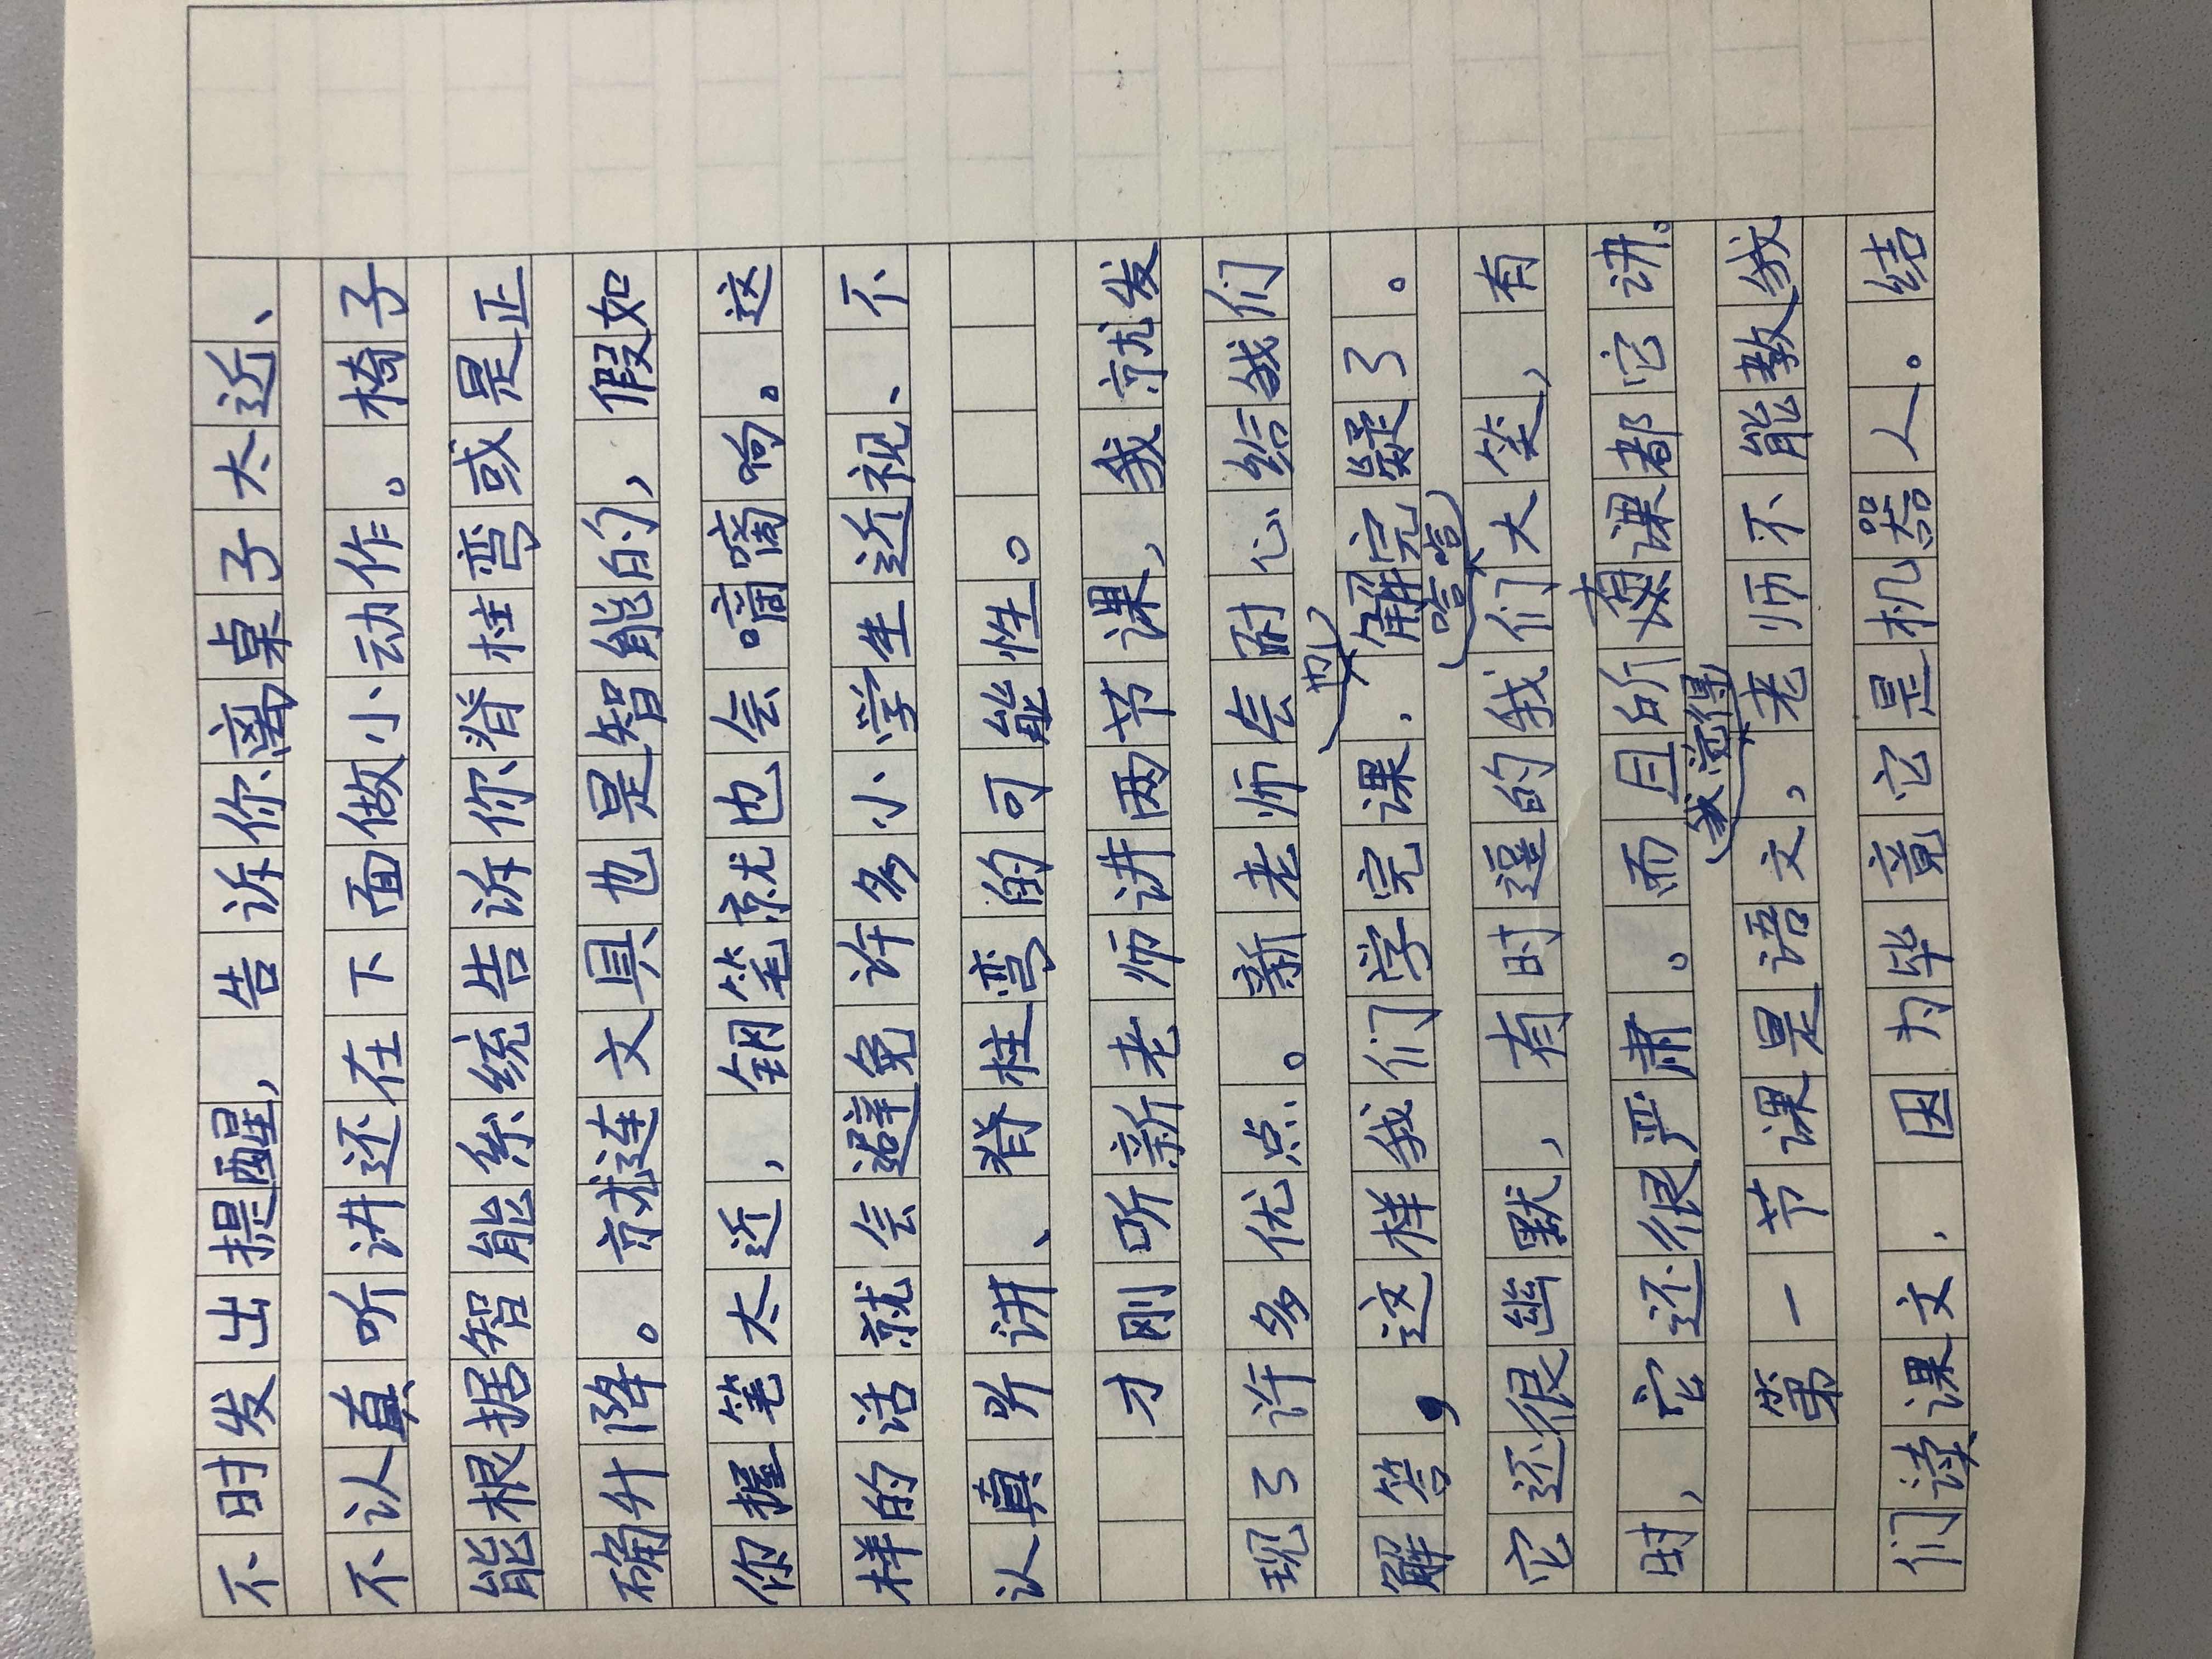 不时发出提醒，告诉你离桌子太近、
不认真听讲还在下面做小动作。椅子
能根据智能系统告诉你脊柱弯或是正
确升降。就连文具也是智能的，假如
你握笔太近，钢笔就也会嘀嘀响。这
样的话就会避免许多小学生近视、不
认真听讲、脊柱弯的可能性。
才刚听新老师讲两节课，我就发
现了许多优点。新老师会耐心给我们
解答，这样我们学完课，也解完疑了。
它还很幽默，有时逗的我们哈哈大笑，有
时，它还很严肃。而且所有课都它讲。
第一节课是语文，我觉得老师不能教我
们读课文，因为毕竟它是机器人。结